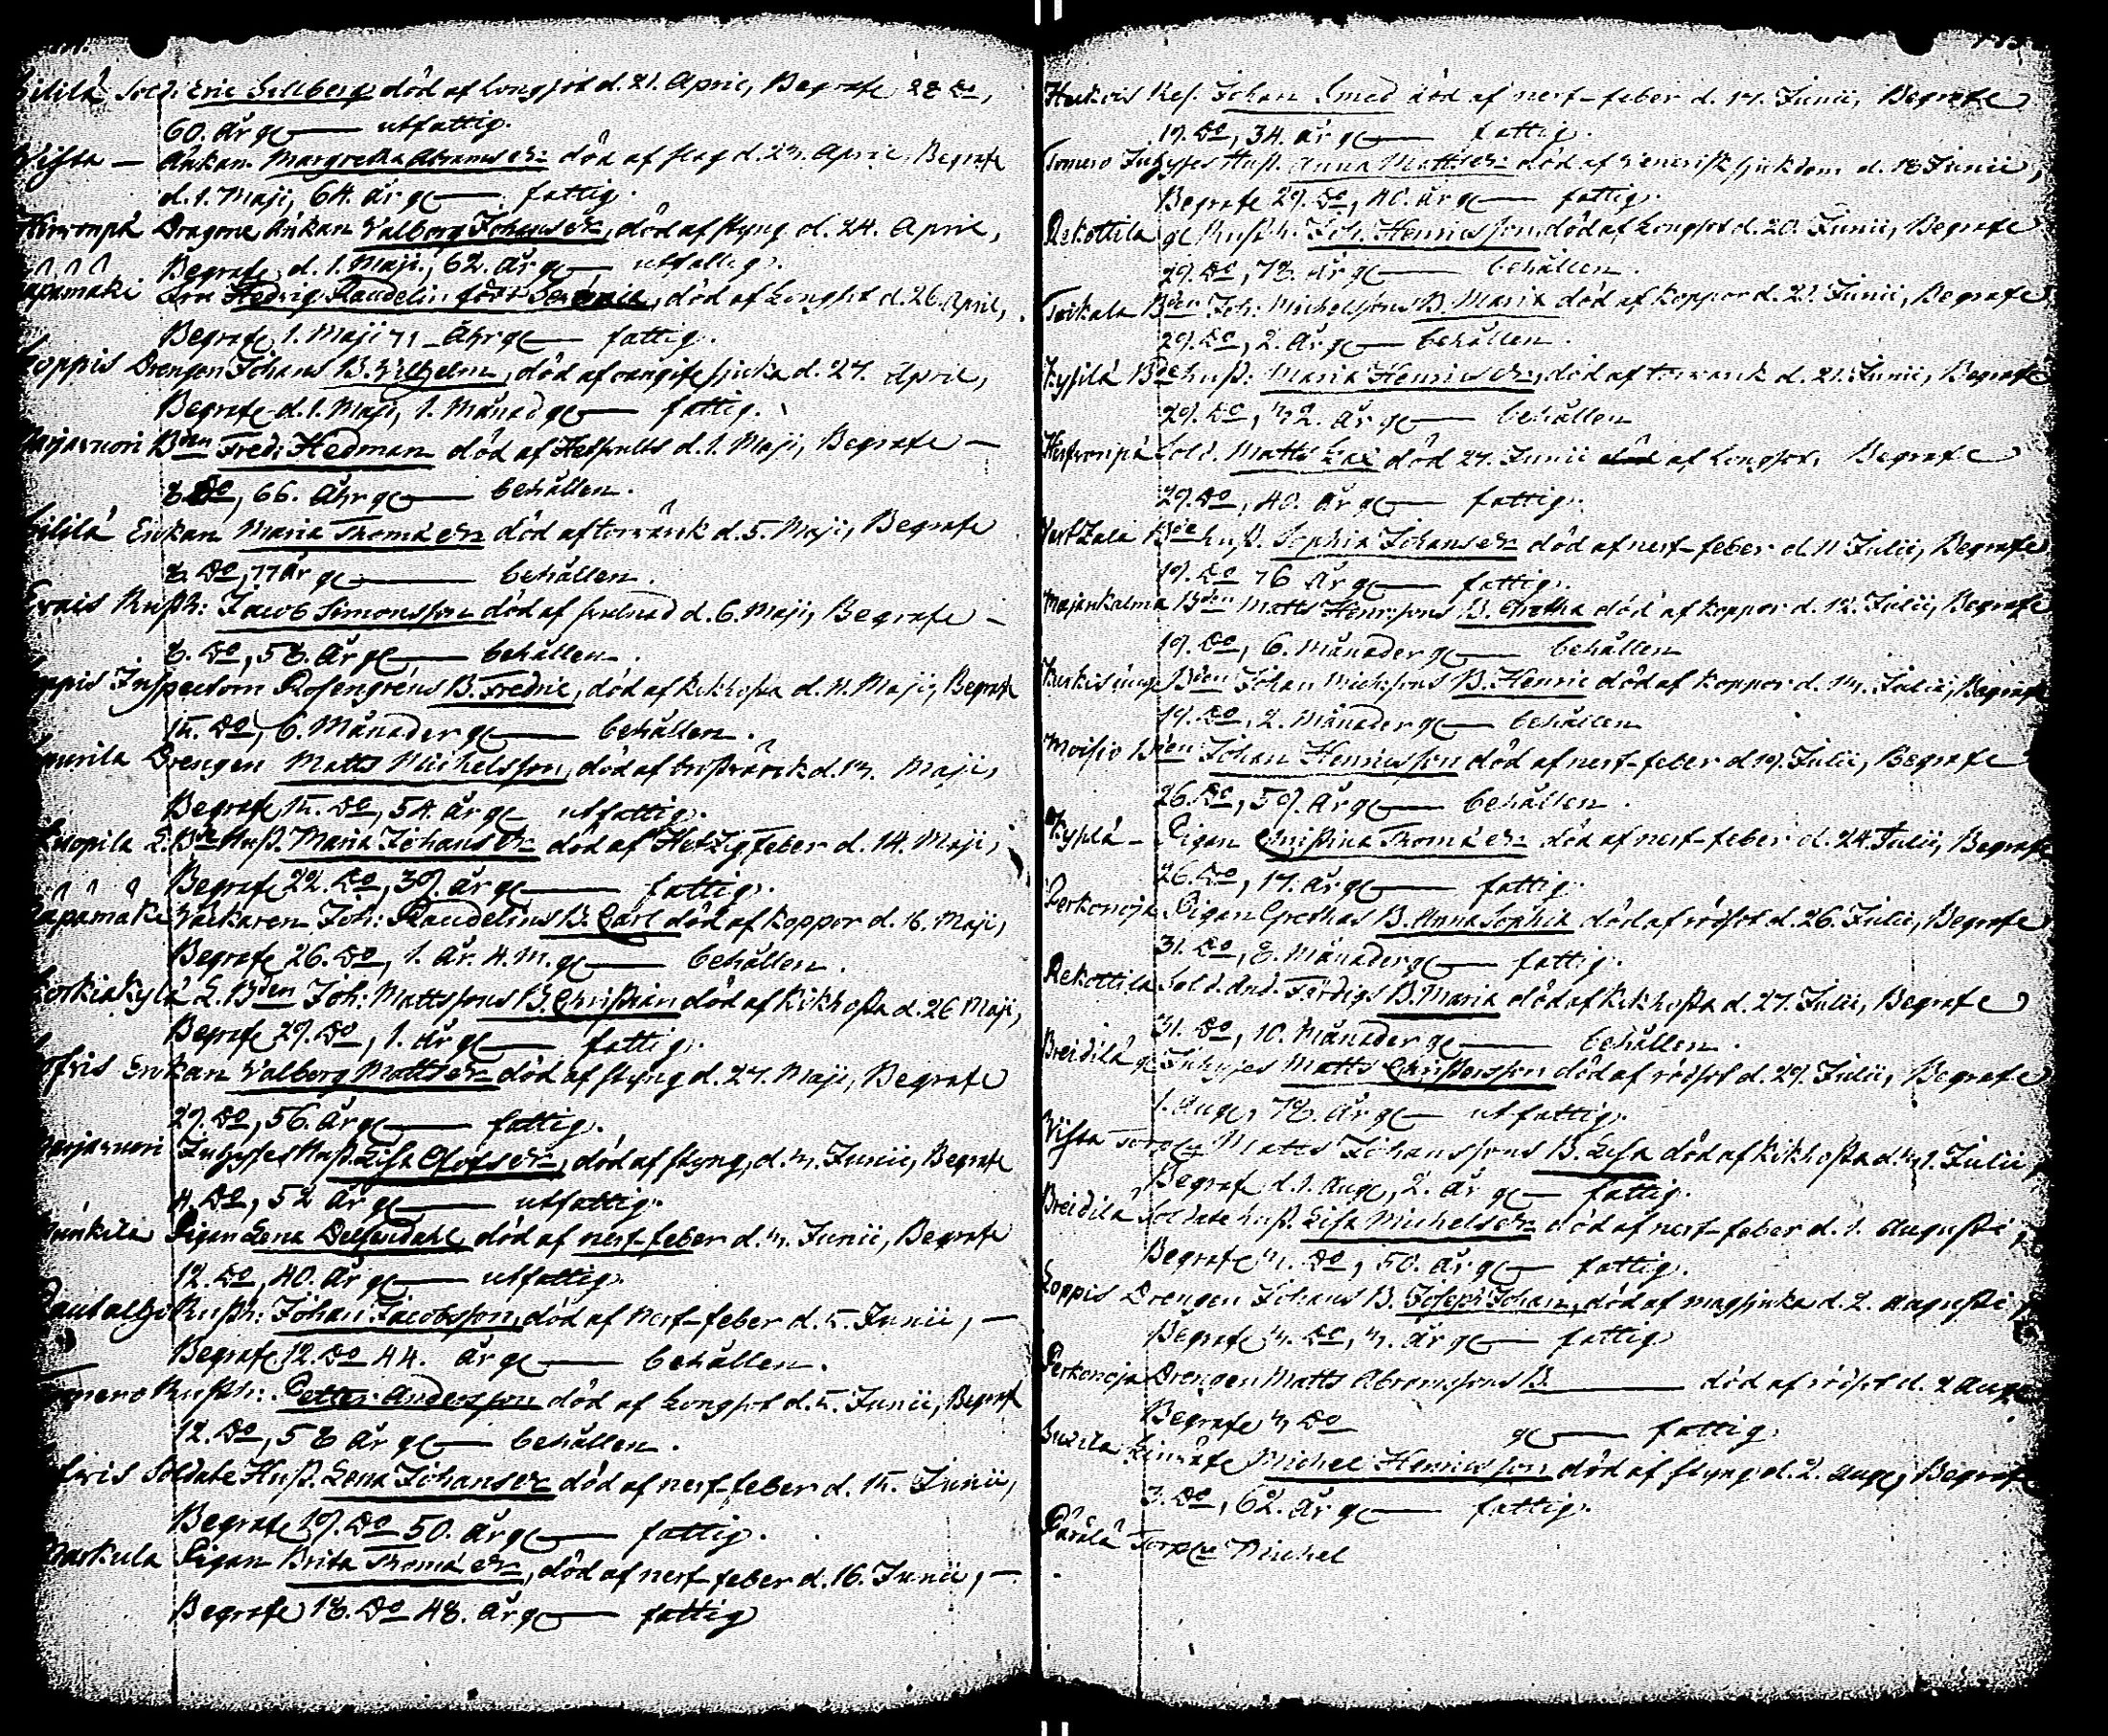 Sold. Eric Sillberg död af Longsot d. 21. April, Begrafe 28 Do,
60. År g utfattig.
Wista — Änkan Margretha Abramsdr död af slag d. 23. April, Begrafe
d. 1. Maji, 64. år g fattig.
Dragone Änkan Valborg Johansdr, död af styng d. 24. April,
Begrafe d. 1. Maji, 62. År g utfattig.
Hedvig Raudelin född, död af Longsot d. 26 April,
Begrafe 1. Maji 71 Åhr g fattig.
Drengen Johans B. Wilhelm, död af d. 27. April,
Begrafe d. 1. Maji, 1. Månad g fattig.
Bden Fredr: Hedman död af d. 1. Maji, Begrafe —
8. Do, 66. Åhr g behållen.
Enkan Maria Thomädr död af torrvärk d. 5. Maji, Begrafe
8. Do, 77 År g behållen.
Rusth: Jacob Simonsson död af d. 6. Maji, Begrafe —
8. Do, 58. År g behållen.
Inspectorn Rosengréns B. Fredric, död af Kikhosta d. 11. Maji, Begrafe
15. Do, 6. Månader g behållen.
Drengen Matts Michelsson, död af bröstvärk d. 13. Maji,
Begrafe 15. Do, 54. år g utfattig.
Luopila L. Bde Hust. Maria Johansdr död af Hetzig feber d. 14. Maji,
Begrafe 22. Do, 39. år g fattig.
Räpämäki Väfkaren Joh: Raudelins B. Carl död af Koppor d. 16. Maji,
Begrafe 26. Do, 1. År. 4. m. g behållen.
L. Bden Joh: Mattssons B. Christian död af Kikhosta d. 26 Maji,
Begrafe 29. Do, 1. år g fattig.
Enkan Valborg Mattsdr död af styng d. 27. Maji, Begrafe
29. Do, 56. År g fattig.
Inhyses Hust. Lisa Olofsdr, död af styng, d. 3. Junii, Begrafe
4. Do, 52 År g utfattig.
Pigan Lena Delfendahl död af nerf-feber d. 3. Junii, Begrafe
12. Do, 40. År g utfattig.
Rusth: Johan Jacobsson, död af Nerf-feber d. 5. Junii, —
Begrafe 12. Do 44. år g behållen.
Rusth: Petter Andersson död af Longsot d. 5. Junii, Begrafe
12. Do, 58 År g behållen.
Soldate Hust. Lena Johansdr död af nerf-feber d. 15. Junii,
Begrafe 19. Do 50. år g fattig.
Markula Pigan Brita Thomädr, död af nerf-feber d. 16. Junii, —
Begrafe 18. Do 48. år g fattig
Res. Johan Smed död af nerf-feber d. 17. Junii, Begrafe
19. Do, 34. år g fattig.
Tomero Inhyses Hust. Anna Mattsdr död af Venerisk sjukdom d. 18 Junii,
Begrafe 29. Do, 40. år g fattig.
Rekottila gl Rusth. Joh. Henricsson död af Longsot d. 20. Junii, Begrafe
29. Do, 78. År g behållen.
Toikala Bden Joh: Michelssons B. Maria död af Koppor d. 21. Junii, Begrafe
29. Do, 2. År g behållen.
Bde hust. Maria Henricsdr, död af torrvärk d. 21. Junii, Begrafe
29. Do, 32. År g behållen
Sold. Matts Lax död 27. Junii af Longsot, Begrafe
29. Do, 40. År g fattig.
Bde hust. Sophia Johansdr död af nerf-feber d. 11 Julii, Begrafe
19. Do 76 År g fattig.
Majankalma Bden Matts Henrssons B. Gretha död af Koppor d. 12. Julii, Begrafe
19. Do, 6. Månader g behållen
Bden Johan Michssons B. Henric död af Koppor d. 13. Julii, Begrafe
19. Do, 2. Månader g behållen
Moisio Bden Johan Henricsson död af nerf-feber d 19. Julii, Begrafe
26. Do, 59. År g behållen.
Pigan Christina Thomädr död af nerf-feber d. 24. Julii, Begrafe
26. Do, 17. år g fattig.
Perkonoja Pigan Grethas B. Anna Sophia död af rödsot d. 26. Julii, Begrafe
31. Do, 8. Månader g fattig.
Rekottila Sold. And. Färdigs B. Maria död af Kikhosta d. 27. Julii, Begrafe
31. Do, 10. Månader g behållen.
Breidilä gl Inhyses Matts Christersson död af rödsot d. 29. Julii, Begrafe
1. Aug, 78. År g utfattig.
Wista Torp Matts Johanssons B. Lisa död af Kikhosta d. 31. Julii,
Begrafe d. 1. Aug, 2. år g fattig.
Breidilä Soldate hust. Lisa Michelsdr död af nerf-feber d. 1. Augusti,
Begrafe 3. Do, 50. år g fattig.
Loppis Drengen Johans B. Joseph Johan, död af magsjuka d. 2. Augusti,
Begrafe 3. Do, 3. år g fattig
Perkonoja Drengen Matts Abramssons B. död af rödsot d. 2 Aug
Begrafe 3 Do g fattig.
Michel Henricsson död af styng d. 2. Aug, Begrafe
3. Do, 62. År g fattig.
Pärälä Torp Michel